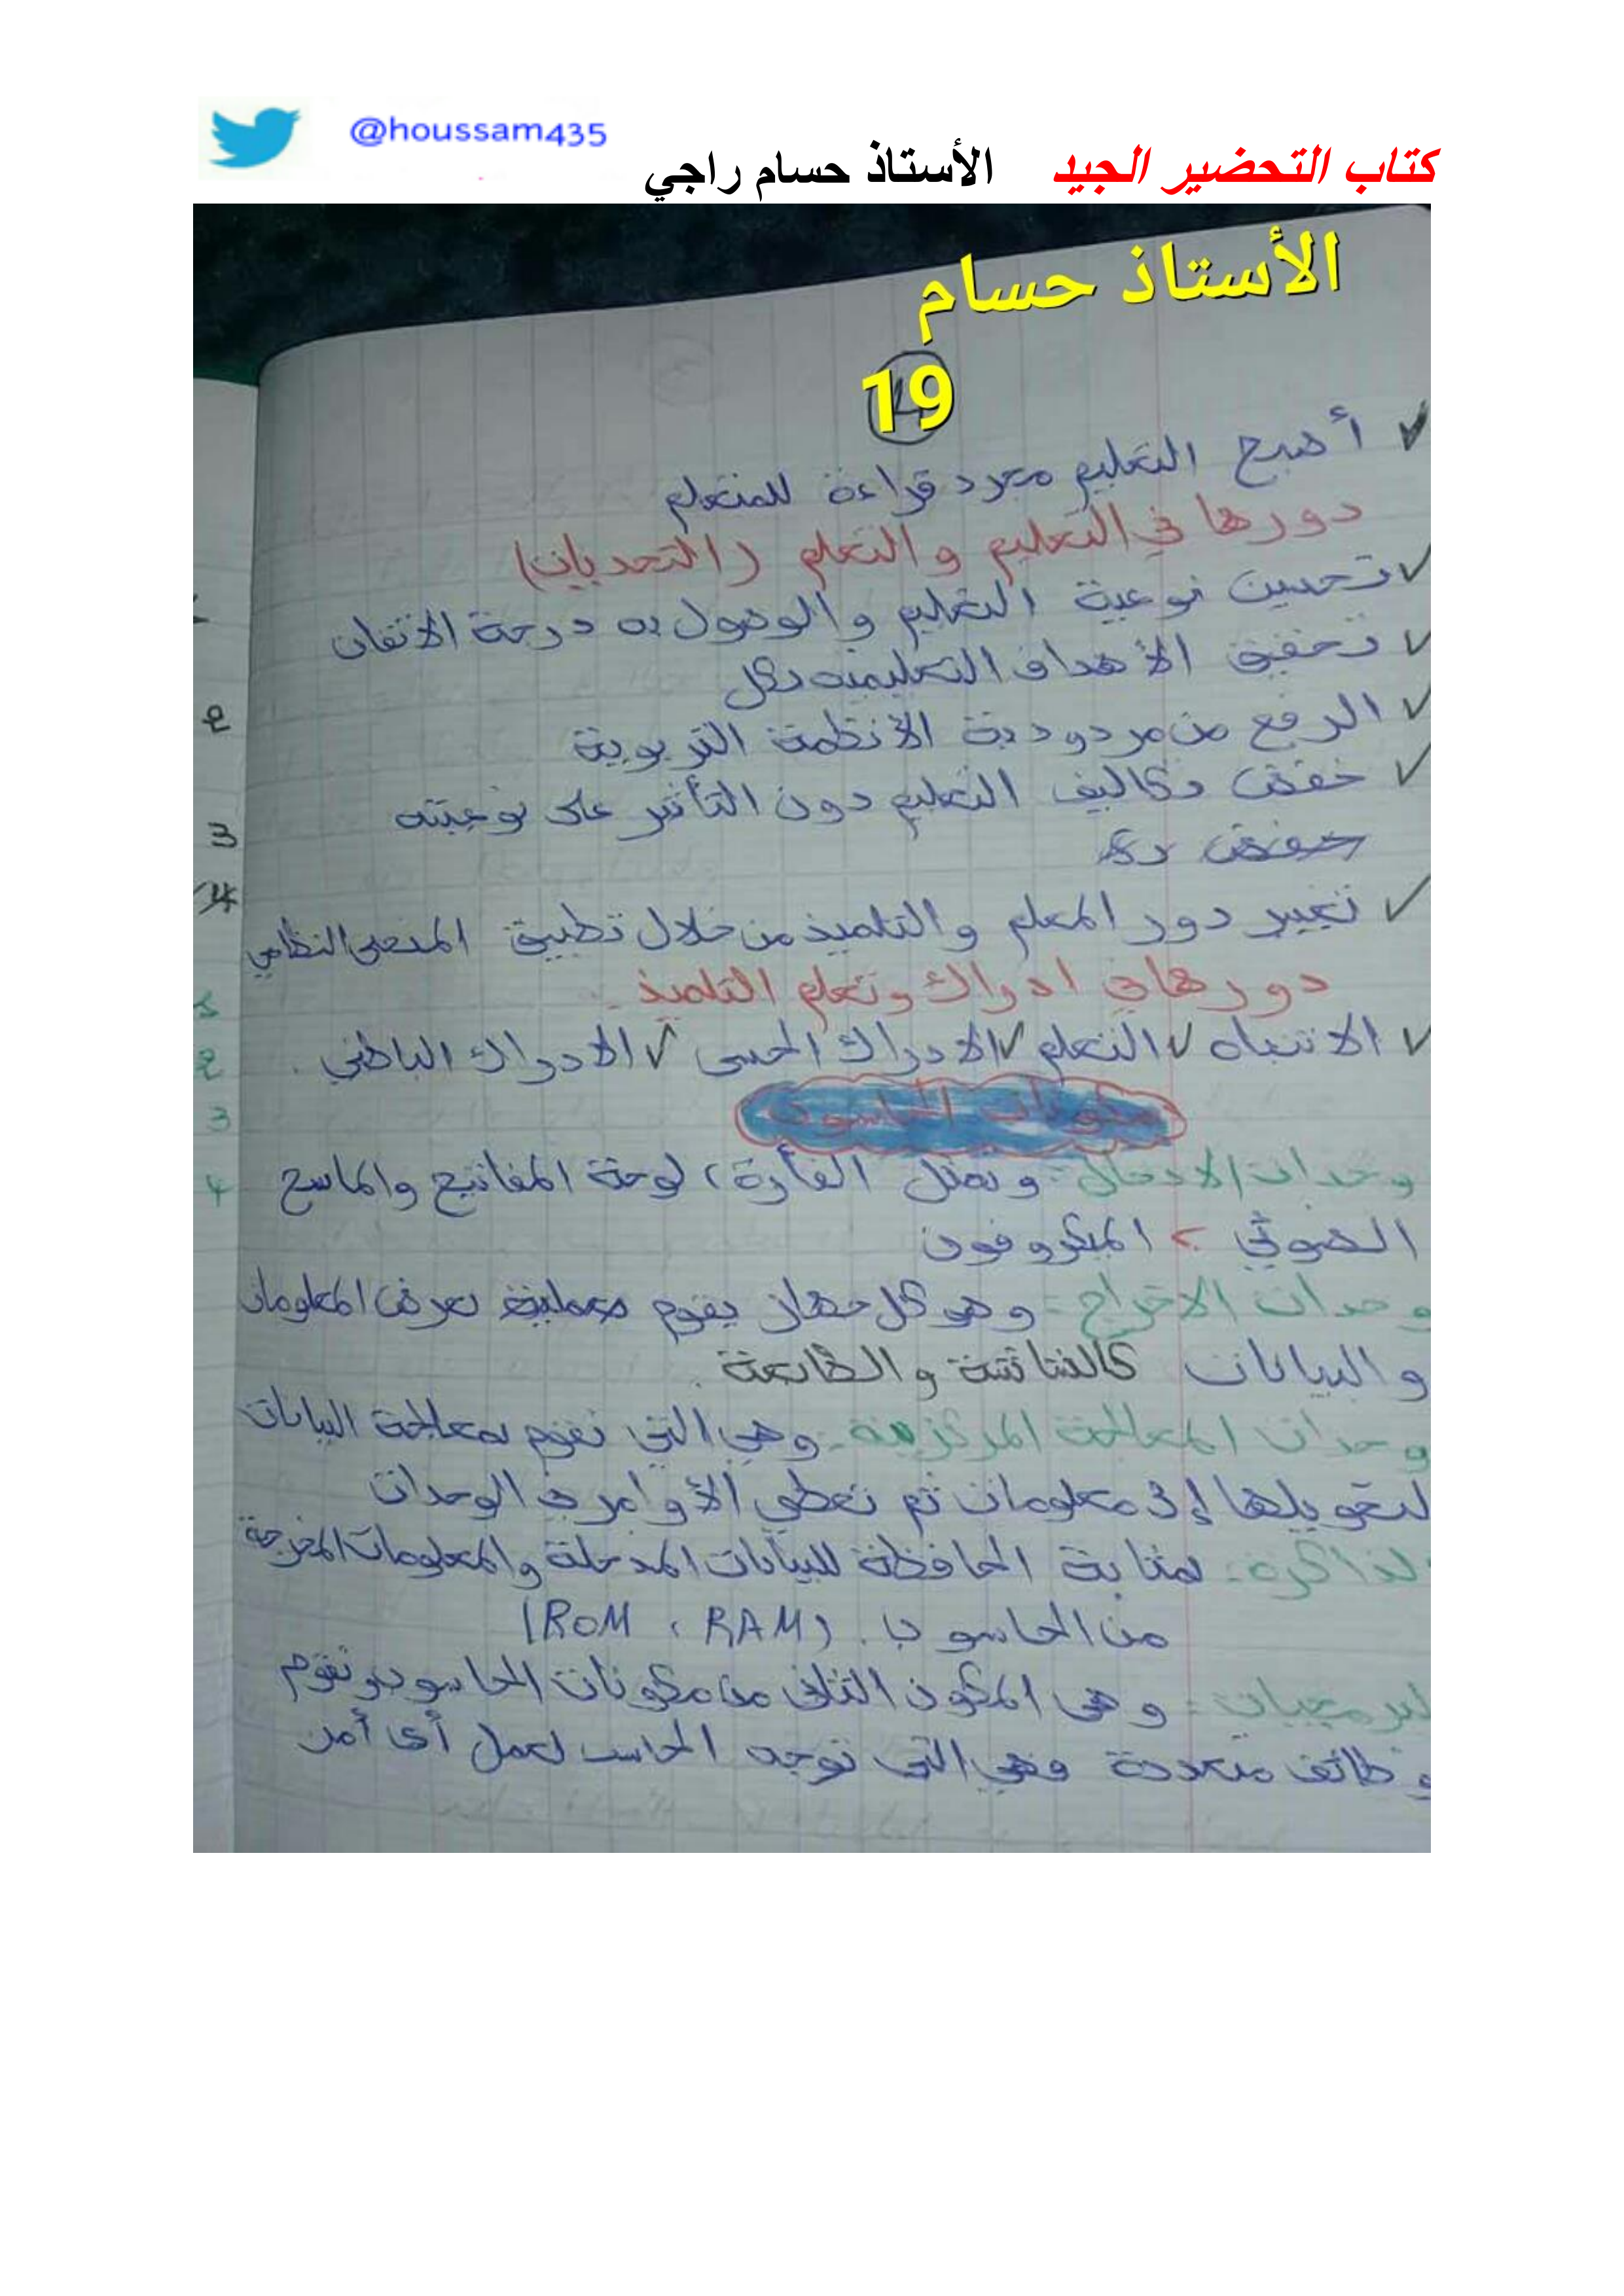 @houssam435
كتاب التحضير الجيد الأستاذ حسام راجي
الأستاذ حسام
19
✓ أصبح التعليم مجرد قراءة للمتعلم
دورها في التعليم والتعلم (التحديات)
✓ تحسين نوعية التعليم والوصول به درجة الاتقان
✓ تحقيق الأهداف التعليمية بكل
✓ الرفع من مردودية الأنظمة التربوية
✓ خفض تكاليف التعليم دون التأثير على نوعيته
خفض تك
✓ تغيير دور المعلم والتلميذ من خلال تطبيق المنحى النظامي
دورها في ادراك وتعلم التلميذ
✓ الانتباه ✓ التعلم ✓ الادراك الحسي ✓ الادراك الباطني .
مكونات الحاسوب
وحدات الادخال: وتمثل الفأرة، لوحة المفاتيح والماسح
الضوئي > الميكروفون
وحدات الاخراج: وهو كل جهاز يقوم بعملية عرض المعلومات
والبيانات كالشاشة والطابعة .
وحدات المعالجة المركزية: وهي التي تقوم بمعالجة البيانات
لتحويلها إلى معلومات ثم تعطي الأوامر في الوحدات
الذاكرة: بمثابة الحافظة للبيانات المدخلة والمعلومات المخرجة
من الحاسوب. (ROM ، RAM)
البرمجيات: وهي المكون الثاني من مكونات الحاسوب وتقوم
وظائف متعددة وهي التي توجه الحاسب لعمل أي أمر